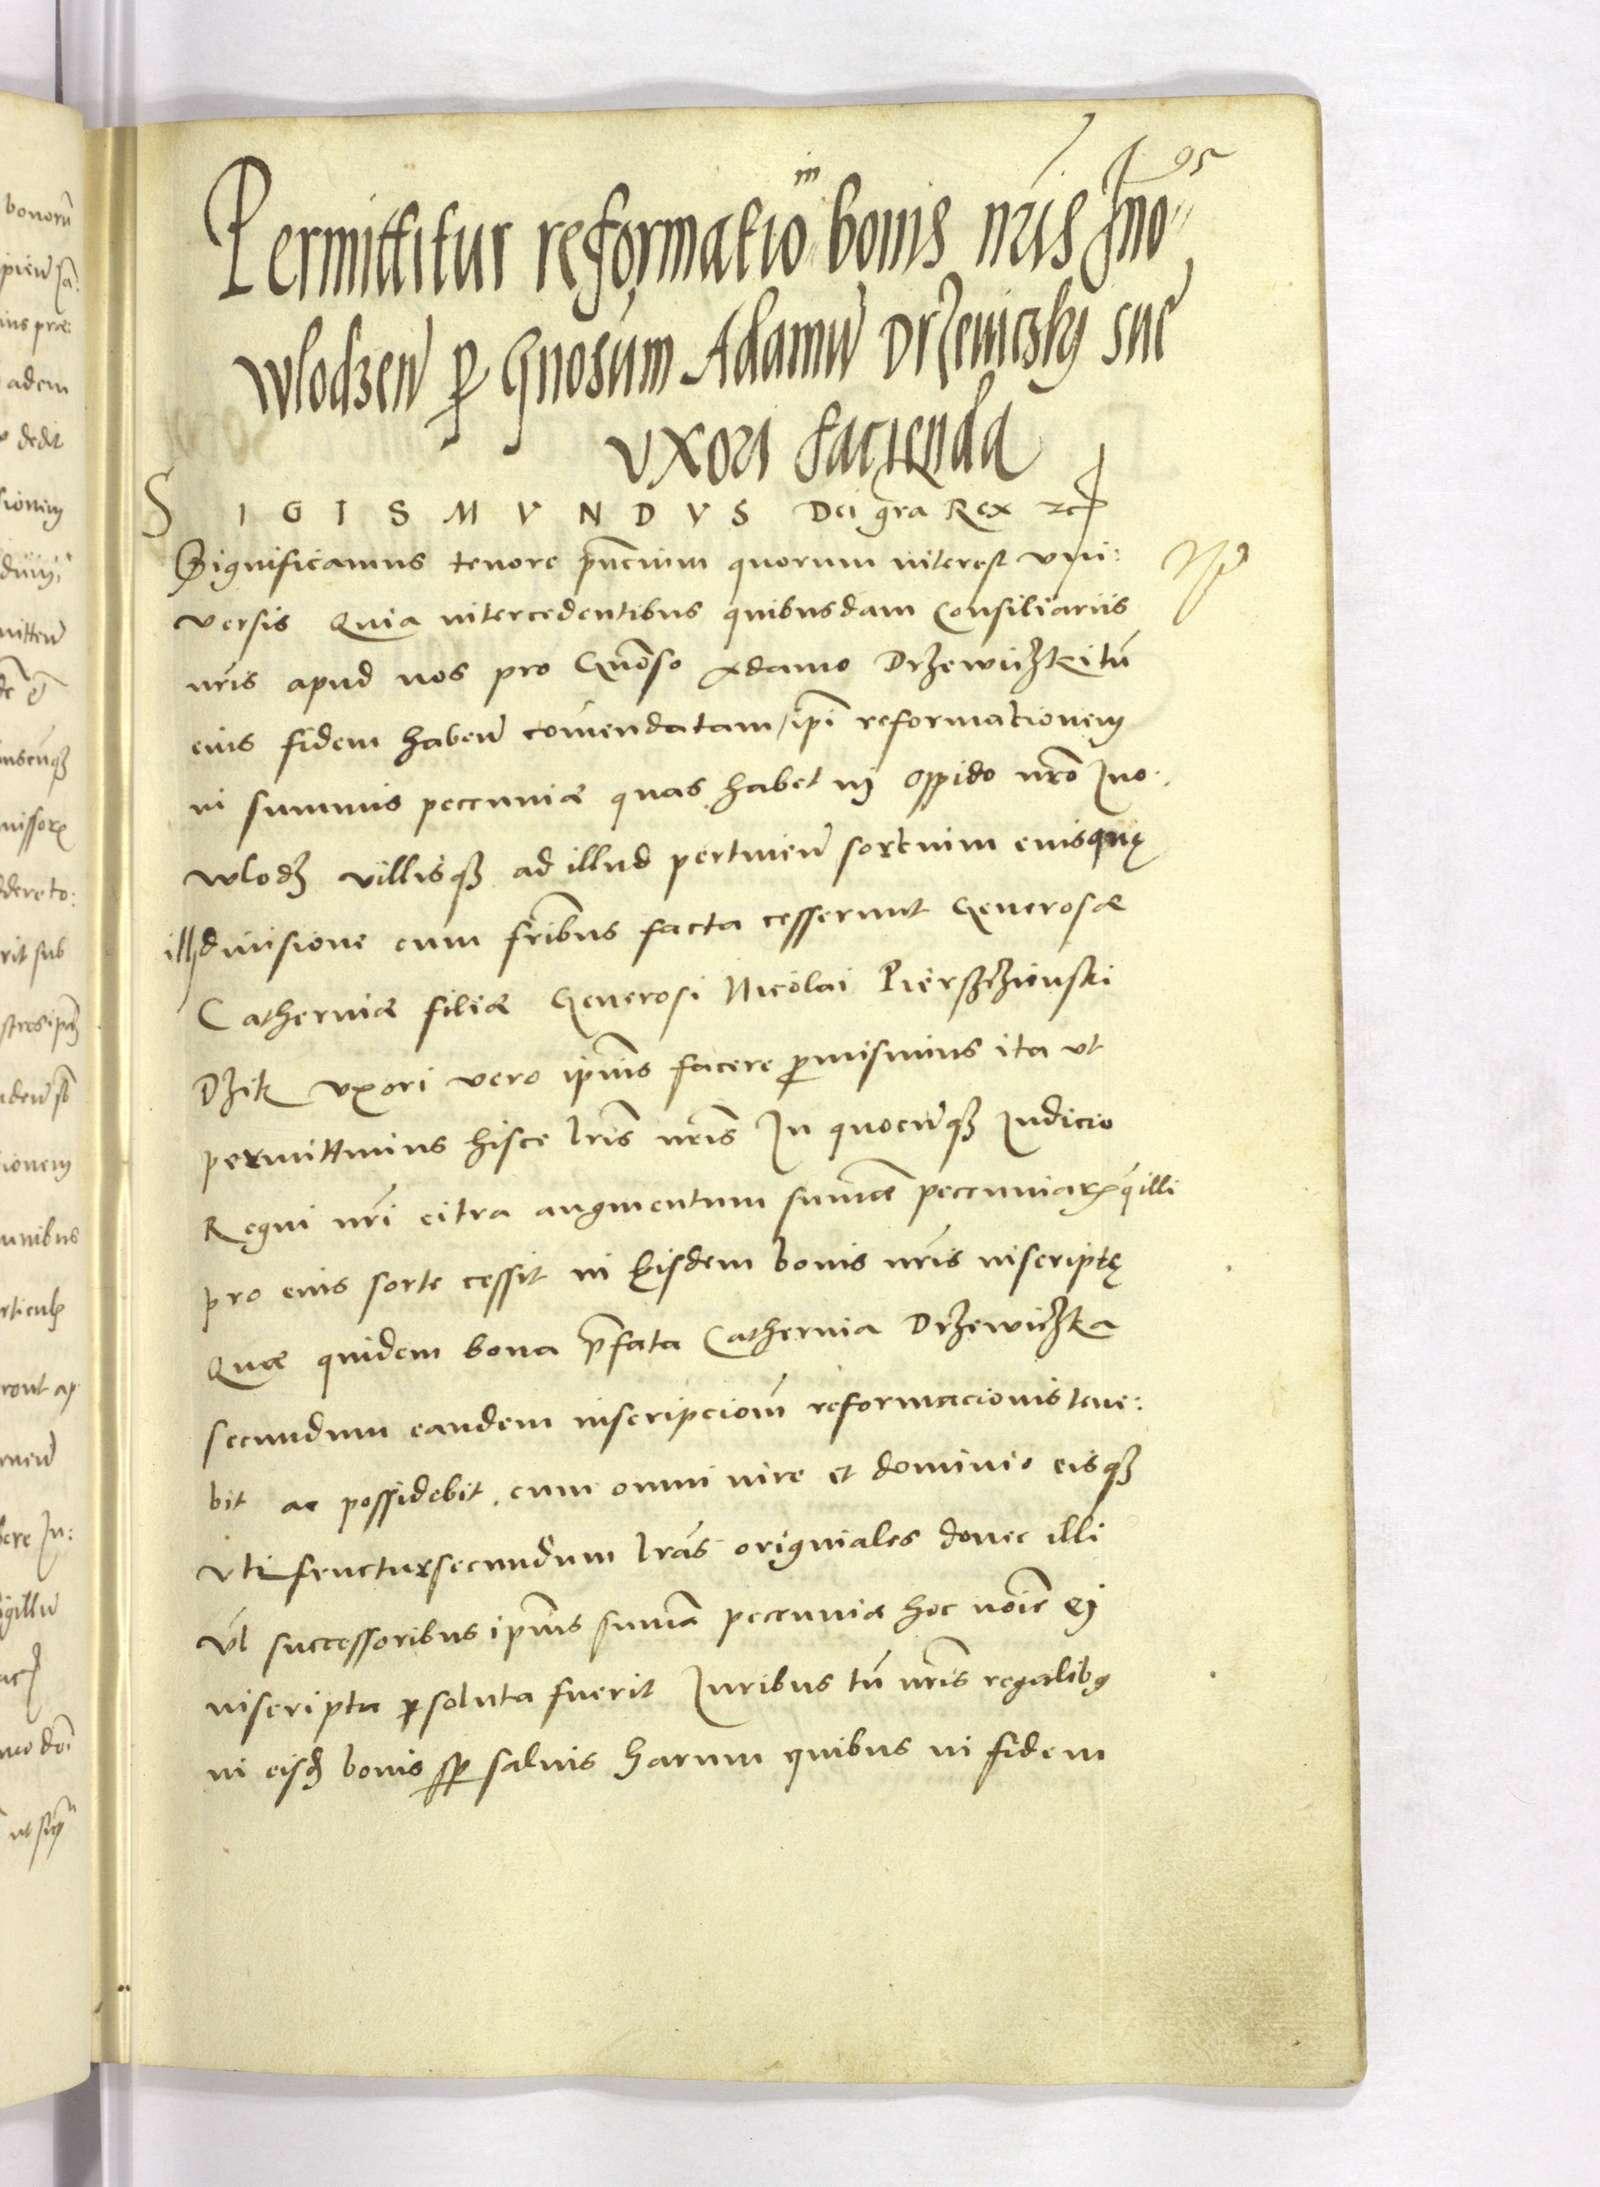 95
Permittitur reformatio in bonis nr̃is Jno„
wlodzeñ p Gnosum Adamũ Drzewiczky sue
vxori facienda
SIGISMVNDVS Dei gr̃a Rex ꝛc
Significamus tenore p̃ncium quorum interest vni:
versis Quia intercedentibus quibusdam Consiliariis
nr̃is apud nos pro Gñoso Adamo Drzewiczki tũ
eius fidem habeñ com̃endatam / ip̃i reformationem
in summis pecuniæ quas habet in Oppido nr̃o Jno.
wlodz villisqз ad illud pertineñ sortium eiusque
illi diuisione cum fr̃ibus facta cesserunt Generosæ
Catherinæ filiæ Generosi Nicolai Pierszchinski
Dzik vxori vero ip̃ius facere p̱misimus ita vt
permittimus hisce lr̃is nr̃is In quocũqз Iudicio
Regni nr̃i citra augmentum sum̃æ pecuniarꝝ q̃ illi
pro eius sorte cessit in Eisdem bonis nr̃is inscriptę
Quæ quidem bona p̃fata Catherina Drzewiczka
secundum eandem inscripcioñ reformacionis tene:
bit ac possidebit cum omni iure et dominio eisqз
vti fructur secundum lr̃as originales donec illi
vl̃ successoribus ip̃ius sum̃a pecuniæ hoc noĩe ej
inscripta p̱soluta fuerit Iuribus tñ nr̃is regalibꝰ
in eisdz bonis sp̱ saluis Harum quibus in fidem